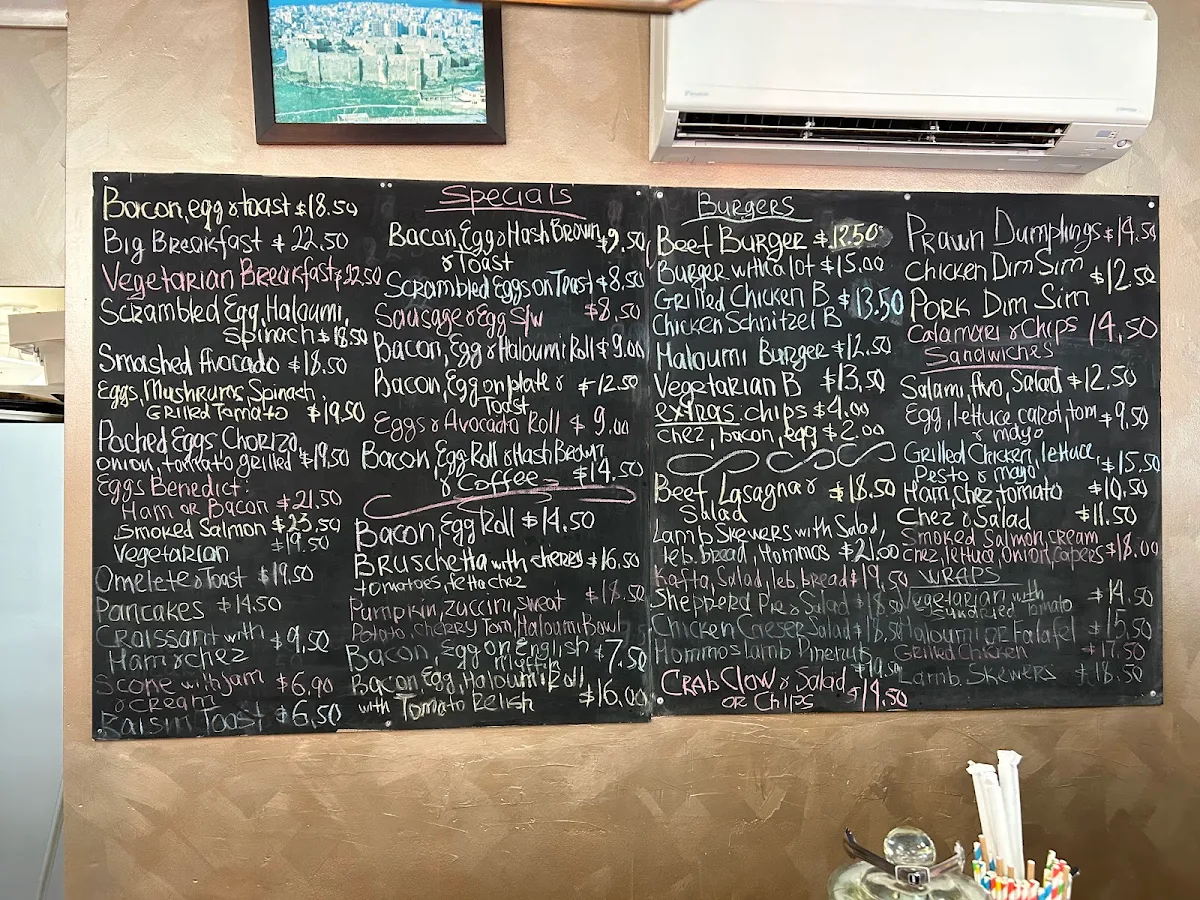 Bacon, egg & toast $18.50
Big Breakfast $22.50
Vegetarian Breakfast $22.50
Scrambled Egg, Haloumi,
Spinach $18.50
Smashed Avocado $18.50
Eggs, Mushrums, Spinach,
Grilled Tomato $19.50
Poched Eggs, Chorizo,
onion, tomato grilled $19.50
Eggs Benedict:
Ham or Bacon $21.50
Smoked Salmon $23.50
Vegetarian $19.50
Omelete & Toast $19.50
Pancakes $14.50
Craissant with $9.50
Ham & chez
Scone with Jam $6.90
& cream
Raisin Toast $6.50
Specials
Bacon, Egg & Hash Brown $9.50
& Toast
Scrambled Eggs on Toast $8.50
Sausage & Egg S/w $8.50
Bacon, Egg & Haloumi Roll $9.00
Bacon, Egg on plate & $12.50
Toast
Eggs & Avocado Roll $9.00
Bacon, Egg Roll & Hash Brown
& Coffee $14.50
Bacon, Egg Roll $14.50
Bruschetta with cherrs $16.50
tomatoes, fetta chez
Pumpkin, zuccini, sweat $18.50
Potato, Cherry Tom, Haloumi Bowl
Bacon, Egg on English $7.50
Muffin
Bacon Egg, Haloumi Roll,
with Tomato Relish $16.00
Burgers
Beef Burger $12.50
Burger with a lot $15.00
Grilled Chicken B $13.50
Chicken Schnitzel B
Haloumi Burger $12.50
Vegetarian B $13.50
extras chips $4.00
chez, bacon, egg $2.00
Beef Lasagna & $18.50
Salad
Lamb Skewers with Salad,
leb. bread, Hommos $21.00
Kafta, Salad, leb bread $19.50
Shepperd Pie & Salad $18.50
Chicken Caeser Salad $18.50
Hommos lamb Pinenuts
$19.50
Crab Claw & Salad $19.50
or Chips
Prawn Dumplings $14.50
Chicken Dim Sim $12.50
Pork Dim Sim
Calamari & Chips 14.50
Sandwiches
Salami, Avo, Salad $12.50
Egg, lettuce, carot, tom $9.50
& mayo
Grilled Chicken, lettuce, $15.50
Pesto & mayo
Ham, chez, tomato $10.50
Chez & Salad $11.50
Smoked Salmon, cream
chez, lettuce, onion, capers $18.00
WRAPS
Vegetarian with $14.50
Sundried Tomato
Haloumi or Falafel $15.50
Grilled Chicken $17.50
Lamb Skewers $18.50